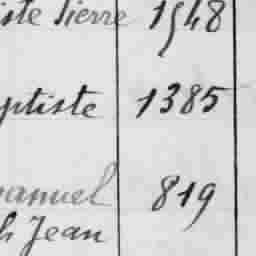 iste Pierre 1548
ptiste 1385
anuel 819
h Jean